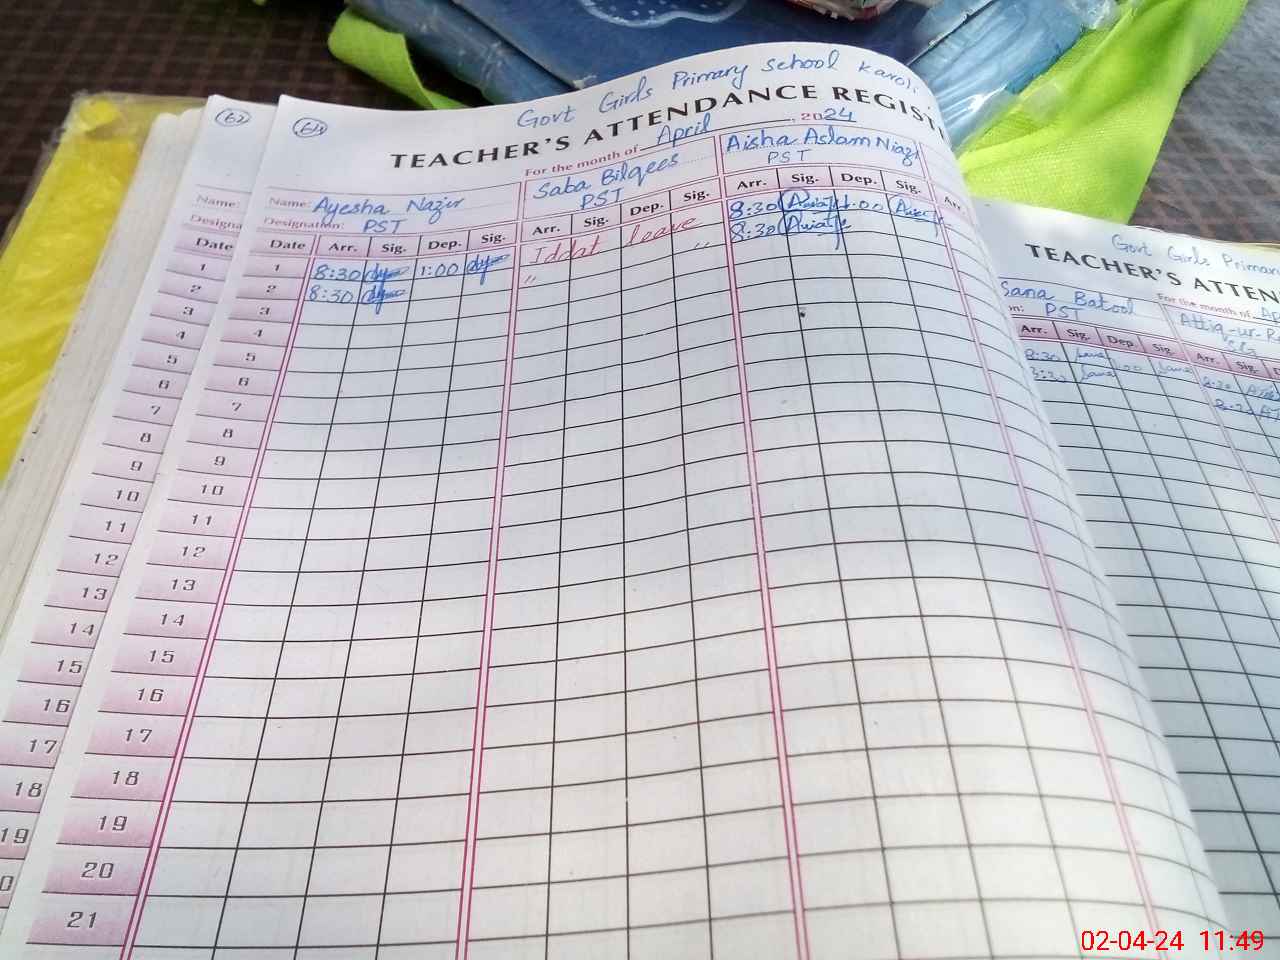 62
64
Govt Girls Primary School Karoli
TEACHER'S ATTENDANCE REGIST
For the month of April, 2024
Name: Ayesha Nazir
Designation: PST
Saba Bilqees
PST
Aisha Aslam Niazi
PST
Date Arr. Sig. Dep. Sig. Arr. Sig. Dep. Sig. Arr. Sig. Dep. Sig. Arr
1 8:30 1:00 Iddat leave 8:30 1:00
2 8:30 " " 8:30
3
4
5
6
7
8
9
10
11
12
13
14
15
16
17
18
19
20
21
Name:
Designa
Date
1
2
3
4
5
6
7
8
9
10
11
12
13
14
15
16
17
18
19
0
Govt Girls Primar
TEACHER'S ATTEN
For the month of Ap
Sana Batool
on: PST
Attiq-ur-R
Arr. Sig. Dep. Sig. Arr. Sig. D
8:30
8:30
02-04-24 11:49